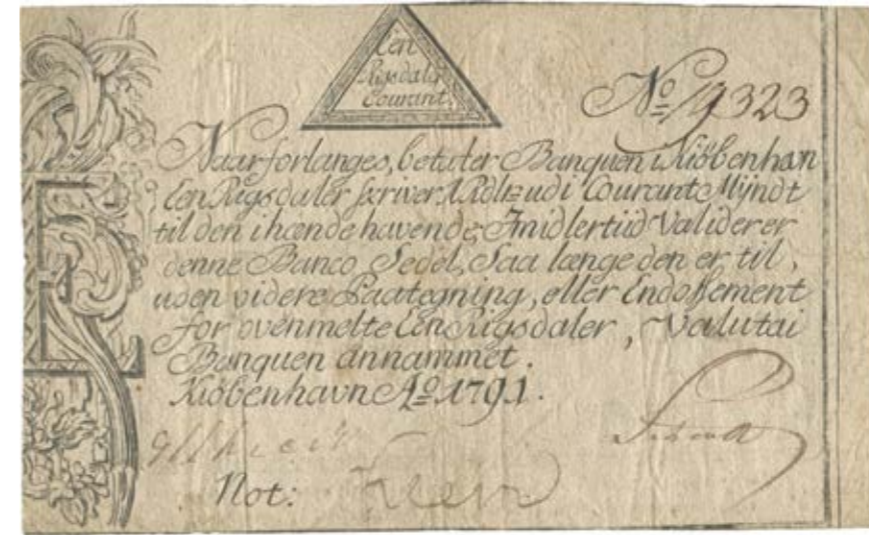 Een
Rigsdaler
Courant.
No 19323
Naar forlanges, betaler Banquen i Kiöbenhavn
Een Rigsdaler skriver 1 Rdlr. udi Courant Myndt
til den ihændehavende, Imidlertiid Validerer
denne Banco Sedel, Saa længe den er til,
uden videre Paategning, eller Endossement
for ovenmelte Een Rigsdaler, Valuta i
Banquen annammet.
Kiöbenhavn Ao 1791.
Not: